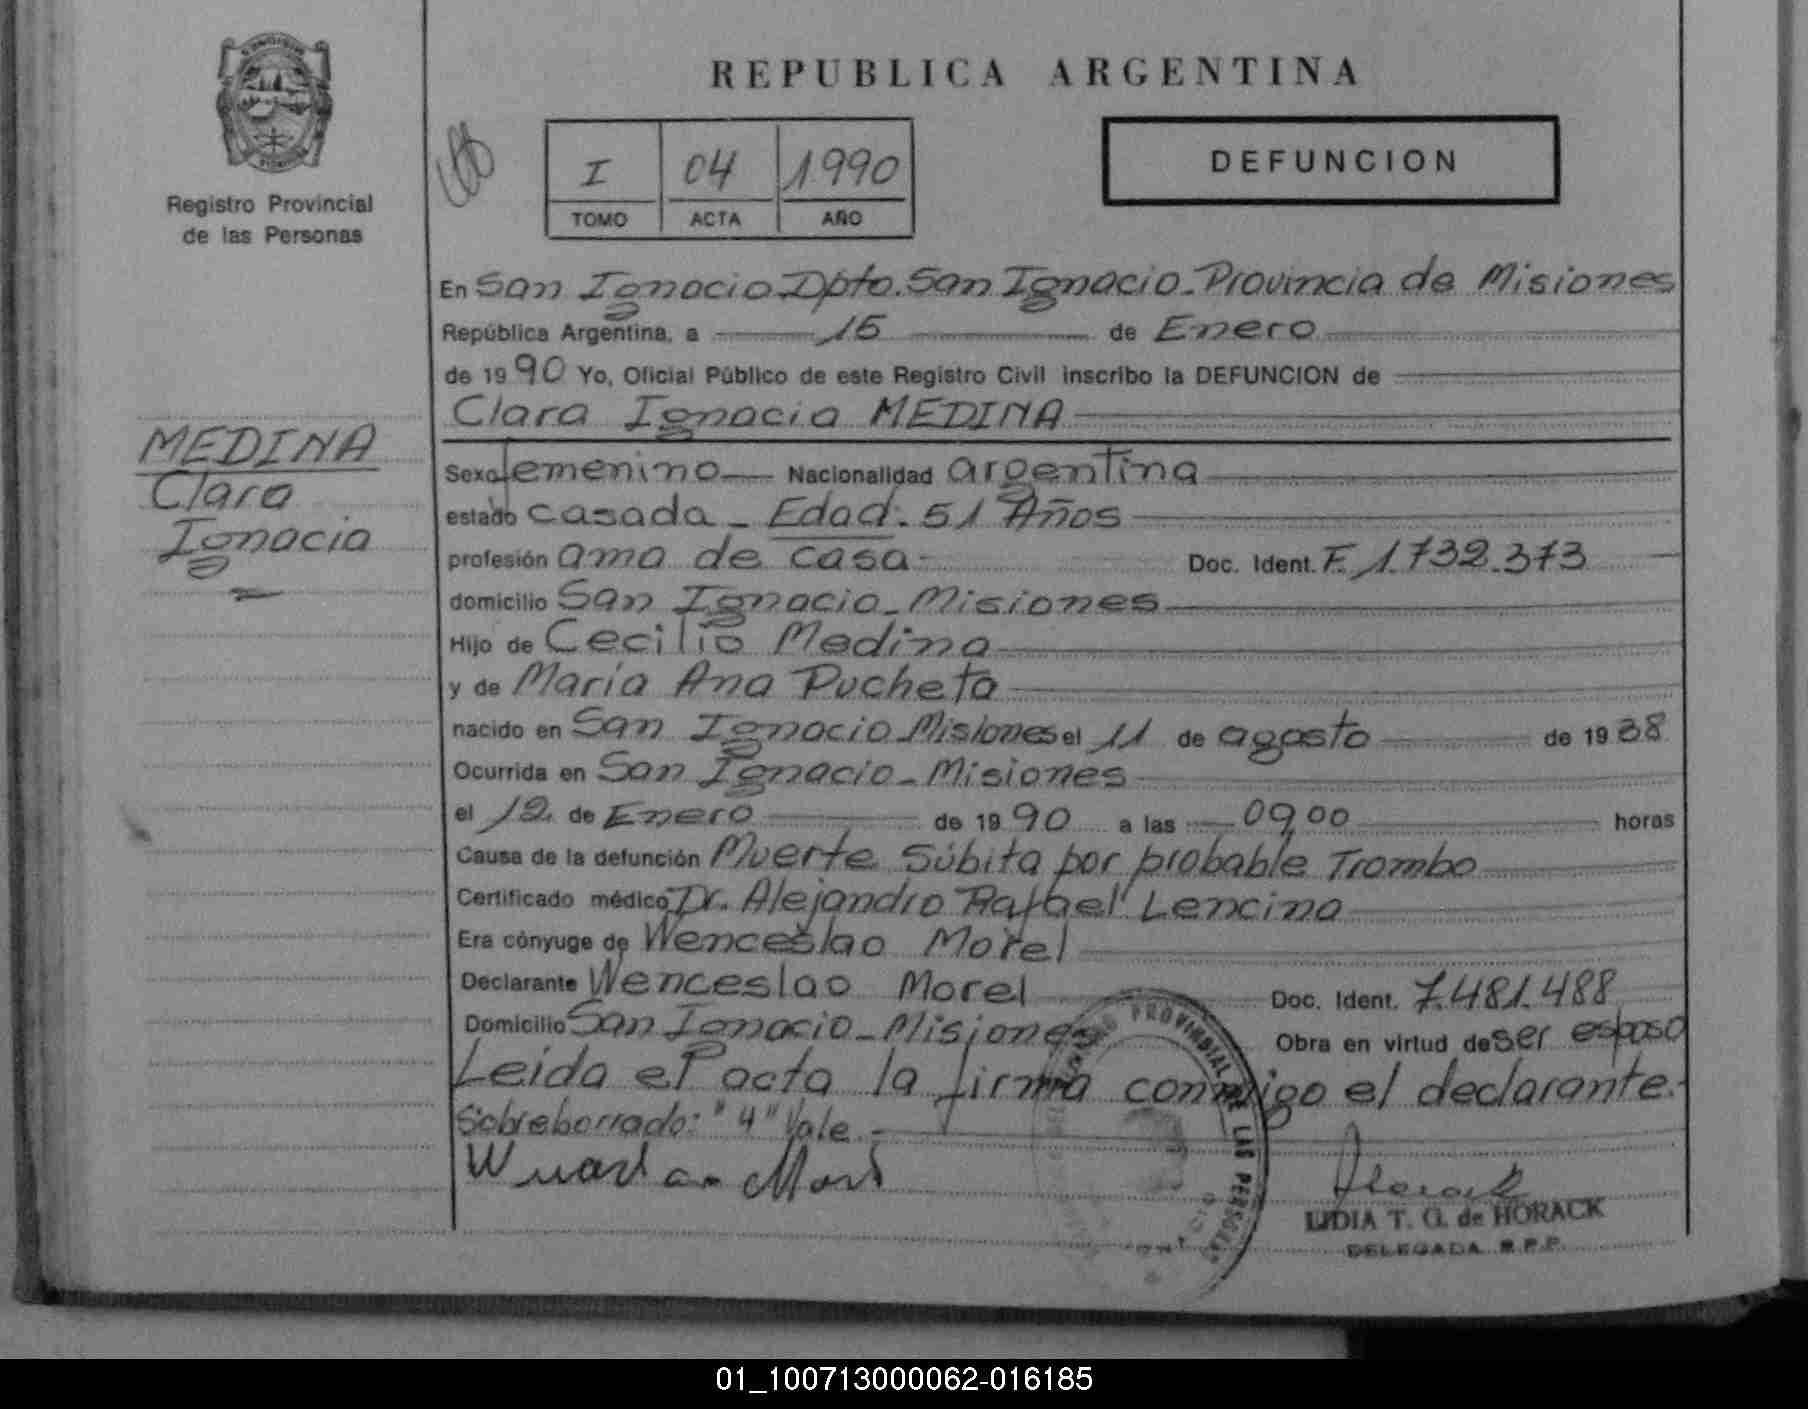 MISIONES
Registro Provincial
de las Personas
REPUBLICA ARGENTINA
I 04 1990
TOMO ACTA AÑO
DEFUNCION
En San Ignacio Dpto. San Ignacio - Provincia de Misiones
República Argentina, a 15 de Enero
de 19 90 Yo, Oficial Público de este Registro Civil inscribo la DEFUNCION de
Clara Ignacia MEDINA
MEDINA
Clara
Ignacia
Sexo femenino Nacionalidad argentina
estado casada - Edad: 51 Años
profesión ama de casa - Doc. Ident. F. 1.732.373
domicilio San Ignacio - Misiones
Hijo de Cecilio Medina
y de María Ana Pucheta
nacido en San Ignacio Misiones el 11 de agosto de 19 38
Ocurrida en San Ignacio - Misiones
el 12 de Enero de 19 90 a las 09,00 horas
Causa de la defunción Muerte Súbita por probable Trombo
Certificado médico Dr. Alejandro Rafael Lencina
Era cónyuge de Wenceslao Morel
Declarante Wenceslao Morel Doc. Ident. 7.481.488
Domicilio San Ignacio - Misiones Obra en virtud de ser esposo
Leída el acta la firma conmigo el declarante.
Sobreborrado: "4" Vale.-
REGISTRO PROVINCIAL DE LAS PERSONAS
LIDIA T. G. de HORACK
DELEGADA R.P.P.
01_100713000062-016185